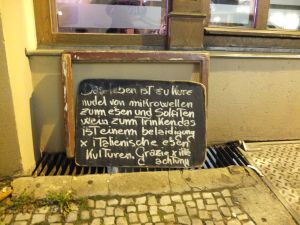 Das leben ist zu kurz
nudel von mikrowellen
zum esen und Solfiten
wein zum Trinken das
ist einem belaidigung
x italienische esen
Kulturen. Grazie x ihre
achtung